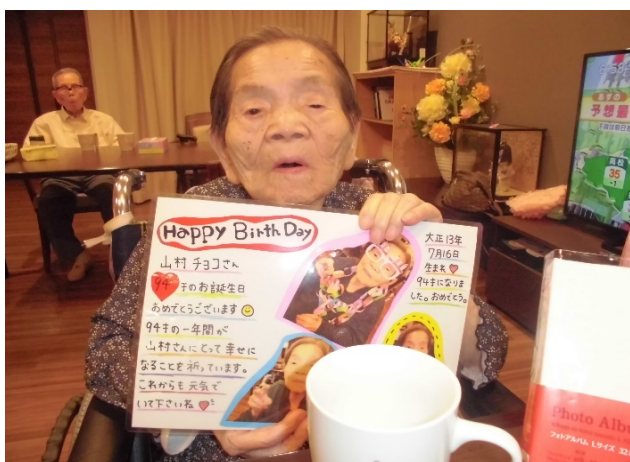 Happy Birth Day
山村 チヨコさん
94才のお誕生日
おめでとうございます
94才の一年間が
山村さんにとって幸せに
なることを祈っています。
これからも元気で
いて下さいね
大正13年
7月16日
生まれ
94才になりま
した。おめでとう。
予想最
高松
35
Photo Albu
フォトアルバム Lサイズ 32